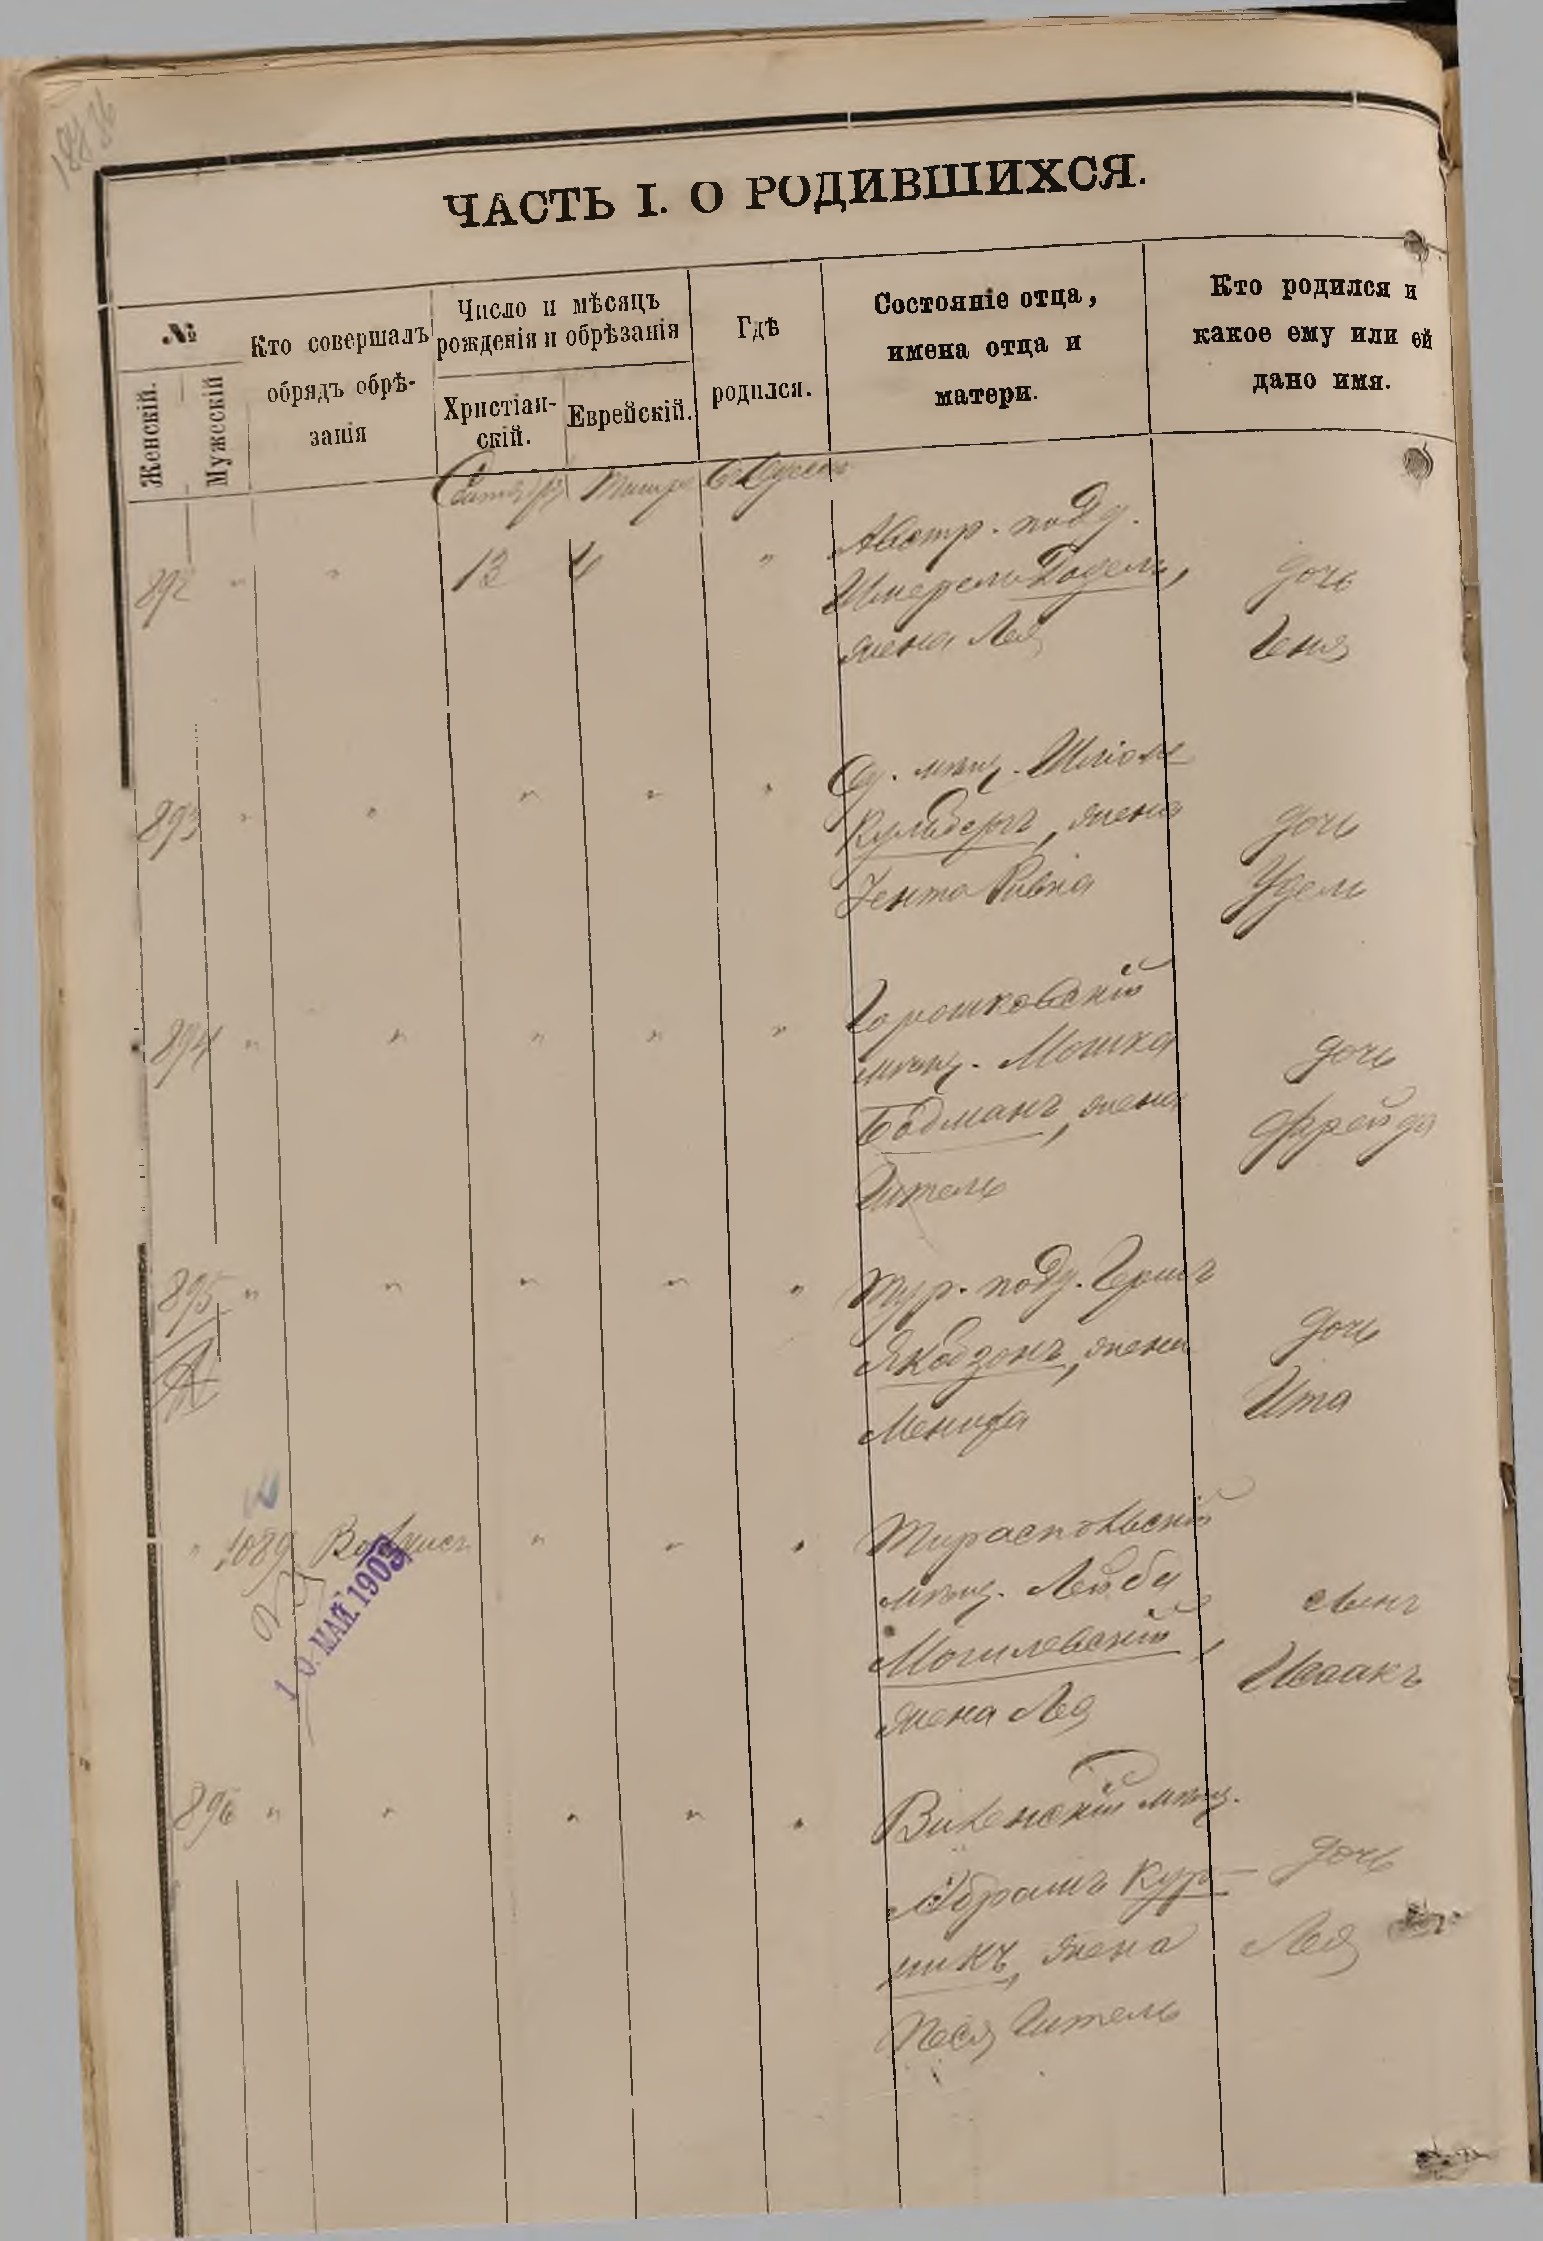 ЧАСТЬ I. О РОДИВШИХСЯ.
№
Женскій.
Мужескій
Кто совершалъ
обрядъ обрѣ-
занія
Число и мѣсяцъ
рожденія и обрѣзанія
Христіан-
скій.
Еврейскій.
Гдѣ
родился.
Состояніе отца,
имена отца и
матери.
Кто родился и
какое ему или ей
дано имя.
Сентябр Тишри Одесса
892 " " 13 4 "
Австр. подд.
Шмерель Додель,
жена Лея
дочь
Геня
893 " " " " "
Од. мѣщ. Шліома
Кульбергъ, жена
Jента Ривка
дочь
Удель
894 " " " " "
Горошковскій
мѣщ. Мошка
Бодманъ, жена
Гитель
дочь
Фрейда
895 " " " " "
Тур. подд. Гершъ
Якобзонъ, жена
Мениха
дочь
Ита
" 1089 " " "
10 МАЙ 1903
Тираспольскій
мѣщ. Лейба
Могилевскій,
жена Лея
сынъ
Исаакъ
896 " " " " "
Виленскій мѣщ.
Абрамъ Кур-
никъ, жена
Песя Гитель
дочь
Лея